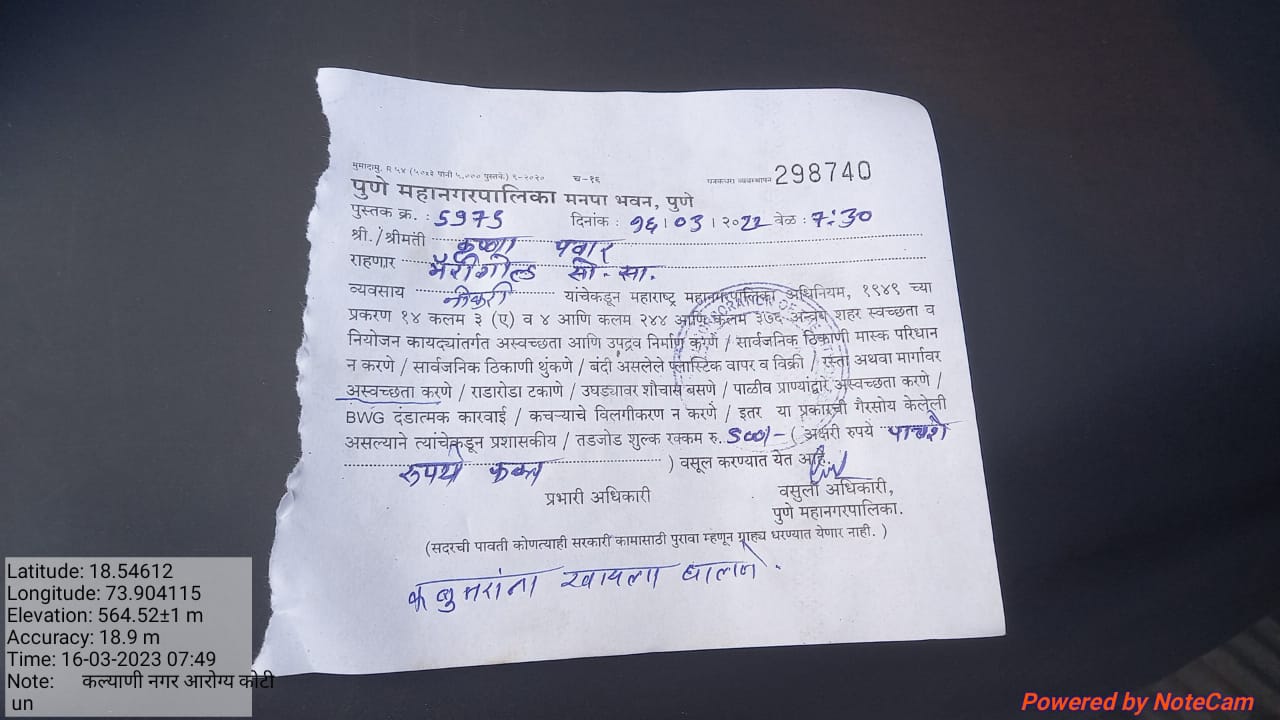 मुमादामु. R ५४ (५०२२ पानी ५,००० पुस्तके) ९-२०२० च-१६
घनकचरा व्यवस्थापन 298740
पुणे महानगरपालिका मनपा भवन, पुणे
पुस्तक क्र. : 5975 दिनांक : १६ । 03 । २०22 वेळ : 7:30
श्री./श्रीमती कृष्णा पवार
राहणार मॅरीगोल्ड सो. सा.
व्यवसाय नोकरी यांचेकडून महाराष्ट्र महानगरपालिका अधिनियम, १९४९ च्या
प्रकरण १४ कलम ३ (ए) व ४ आणि कलम २४४ आणि कलम ३७६ अन्वये शहर स्वच्छता व
नियोजन कायद्यांतर्गत अस्वच्छता आणि उपद्रव निर्माण करणे / सार्वजनिक ठिकाणी मास्क परिधान
न करणे / सार्वजनिक ठिकाणी थुंकणे / बंदी असलेले प्लास्टिक वापर व विक्री / रस्ता अथवा मार्गावर
अस्वच्छता करणे / राडारोडा टकाणे / उघड्यावर शौचास बसणे / पाळीव प्राण्यांद्वारे अस्वच्छता करणे /
BWG दंडात्मक कारवाई / कचऱ्याचे विलगीकरण न करणे / इतर या प्रकारची गैरसोय केलेली
असल्याने त्यांचेकडून प्रशासकीय / तडजोड शुल्क रक्कम रु. 500/- ( अक्षरी रुपये पाचशे
रुपये फक्त ) वसूल करण्यात येत आहे.
प्रभारी अधिकारी वसुली अधिकारी,
पुणे महानगरपालिका.
(सदरची पावती कोणत्याही सरकारी कामासाठी पुरावा म्हणून ग्राह्य धरण्यात येणार नाही. )
कबुतरांना खायला घालणे.
Latitude: 18.54612
Longitude: 73.904115
Elevation: 564.52±1 m
Accuracy: 18.9 m
Time: 16-03-2023 07:49
Note: कल्याणी नगर आरोग्य कोटी
un
Powered by NoteCam